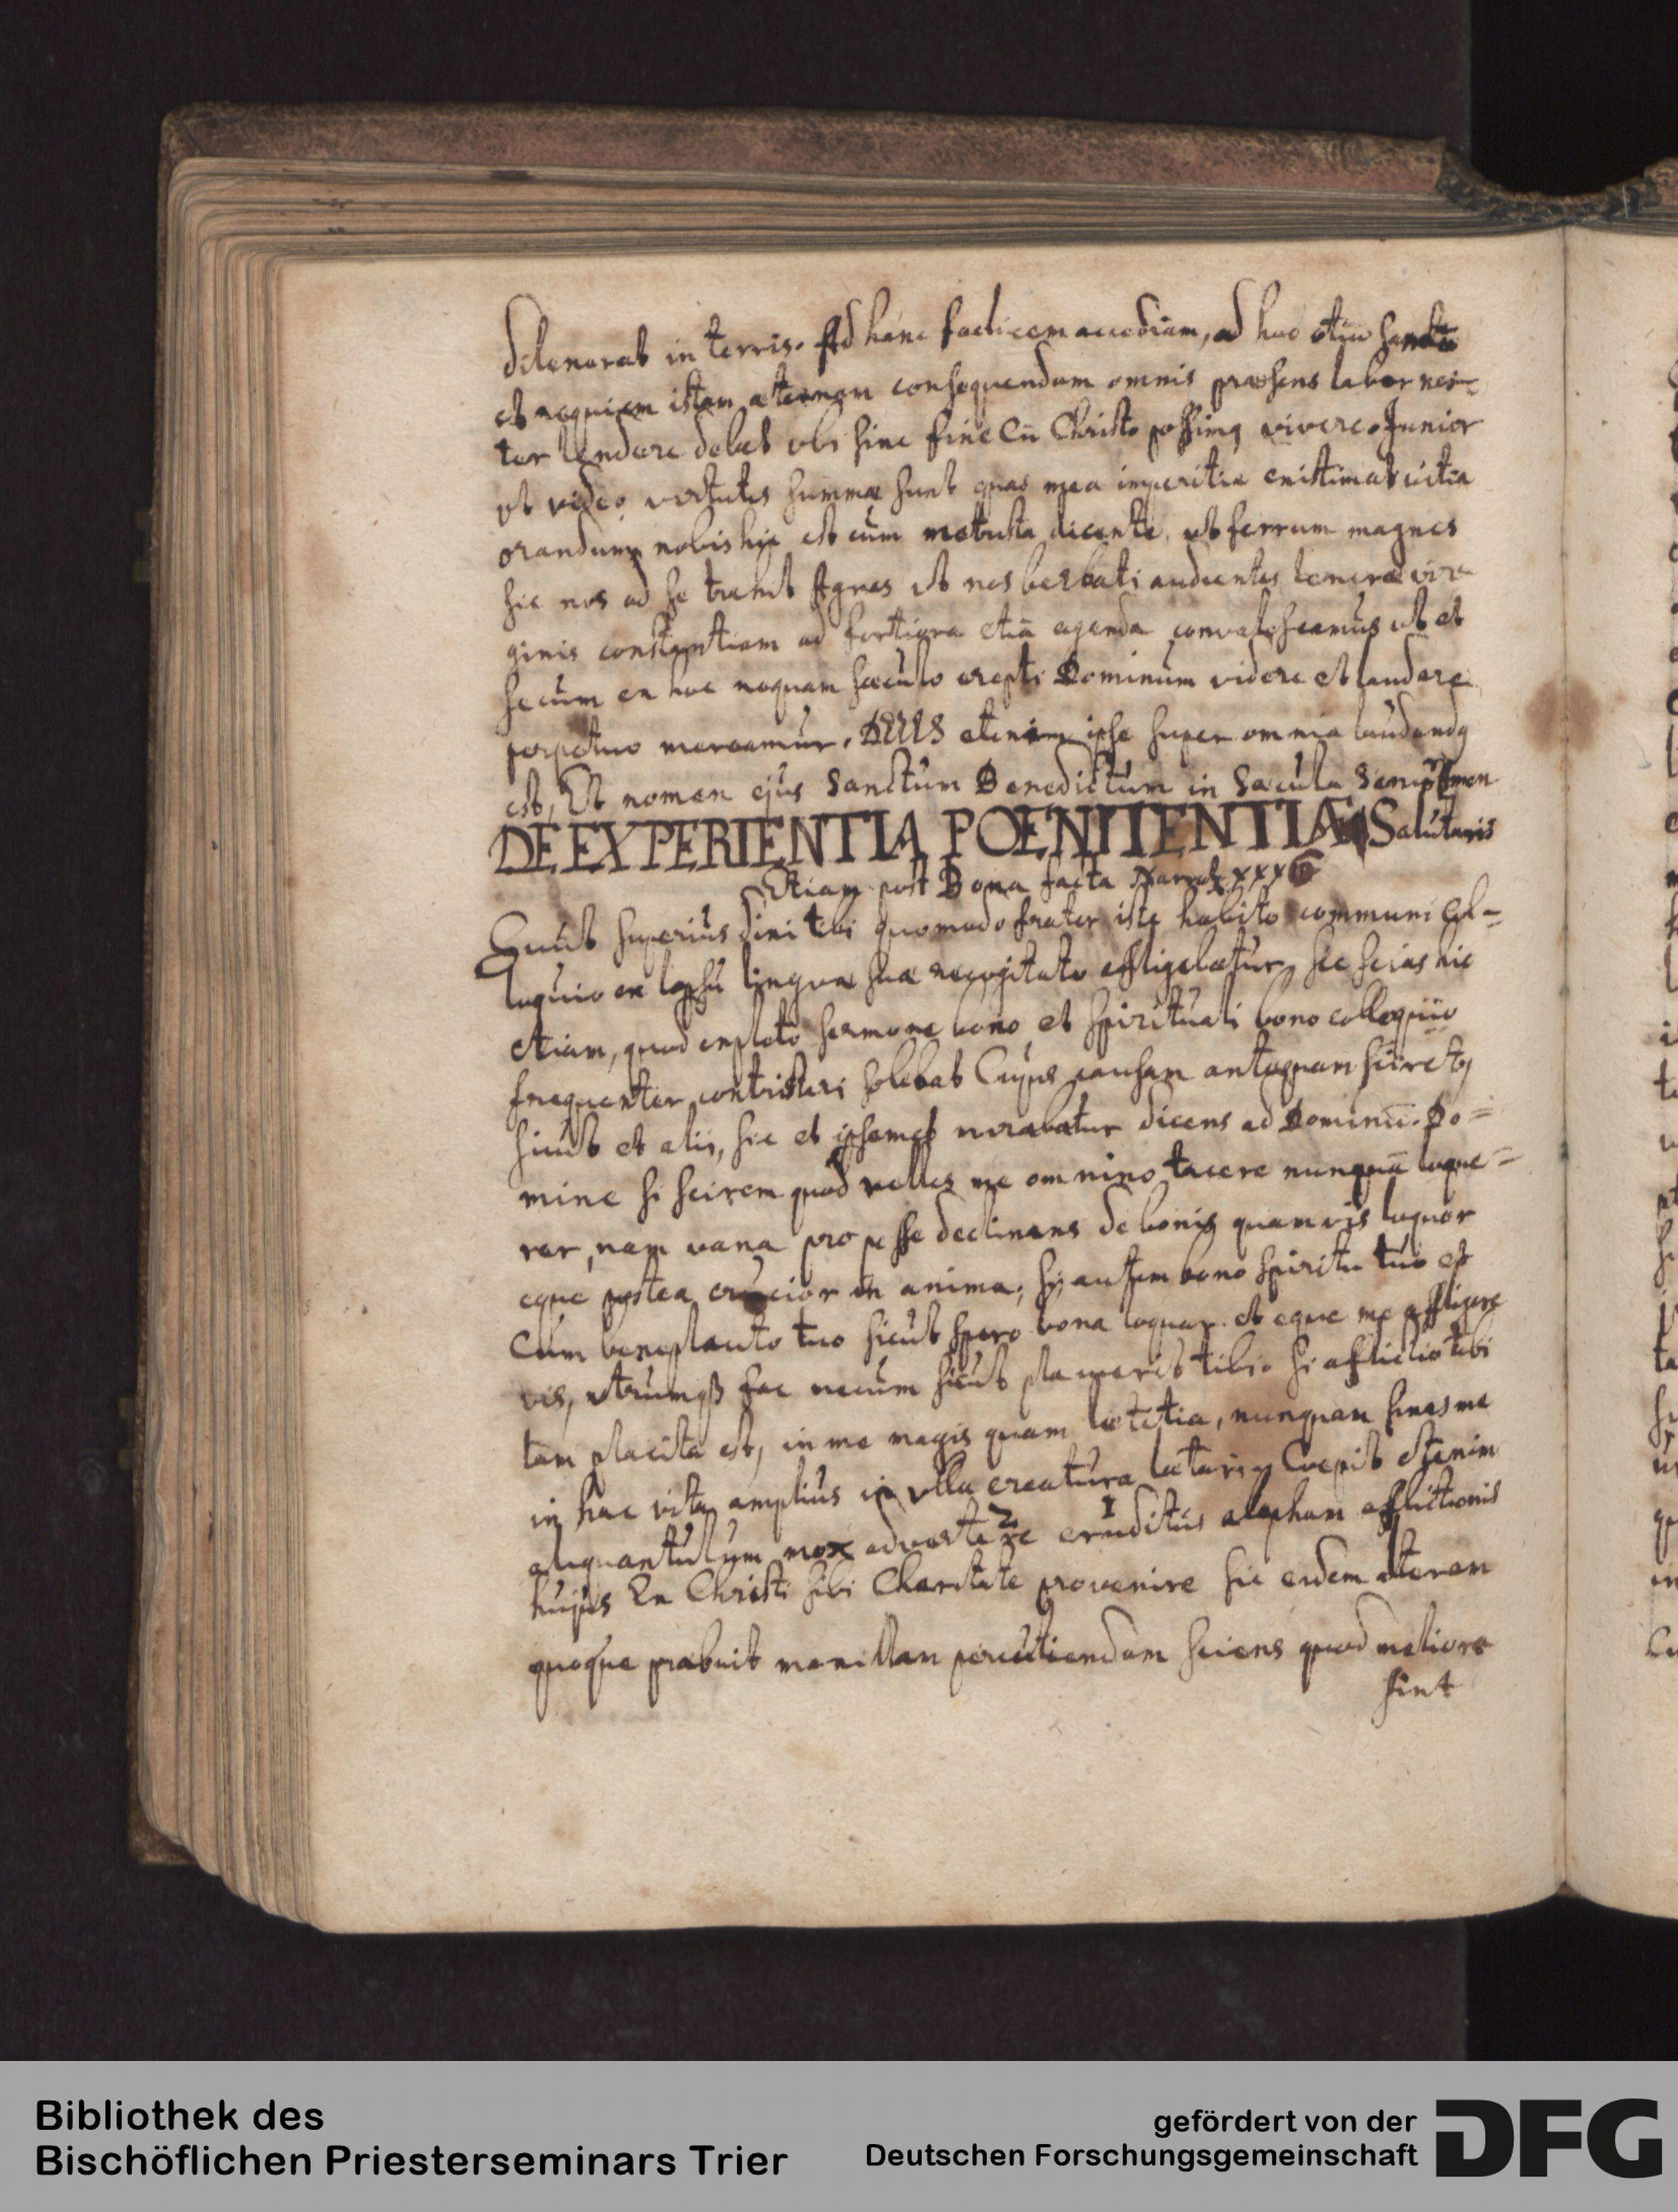 in terris. Ad hanc faelicem accediam, ad hoc otiū sanctū
et requiem istam aeternam consequendam omnis praesens labor nos-
ter tendere debet ubi sine fine Cū Christo possimq vivere. Junior
ut video virtutes summae sunt quas mea imperitia existimat vitia
orandum nobis hic est cum dicente, ut ferrum magnes
sic nos ad se trahit Agnes ut nos barbati audientes tenerae vir-
ginis constantiam ad fortiora etiā agenda convalescamus ut et
secum ex hoc nequam saeculo erepti Dominum videre et laudare
perpetuo mereamur. DEUS etenim ipse super omnia laudandq
est, Et nomen ejus Sanctum Benedictum in Saecula Amen
DE EXPERIENTIA POENITENTIAE Salutaris
Etiam post Bona facta Narrat xxx6
Sicut superius dixi tibi quomodo frater iste habito communi Col-
loquio ex lapsu linguae suae recogitato affligebatur, sic scias hic
etiam, quod expleto sermone bono et spirituali bono colloquio
frequenter contristari solebat Cujus causam antequam sciret
sicut et alii, sic et ipsemet mirabatur dicens ad Dominū. Do=
mine si scirem quod velles me omnino tacere nunquā loque=
rer, nam vana pro posse declinans de bonis quamvis loquor
eque postea crucior in anima; si autem bono spiritu tuo et
Cum beneplacito tuo sicut spero bona loquar et eque me affligere
vis, utrumqß fac mecum sicut placuerit tibi. Si afflictio tibi
tam placita est, in me magis quam laetitia, nunquam sinas me
in hac vita amplius in ulla creatura laetari Coepit etenim
aliquantulum mox advertere 2 eruditus 1 alapham afflictionis
hujus Ex Christi sibi Charitate provenire sic eidem alteram
quoque praebuit maxillam percutiendam sciens quod meliora
sint
Bibliothek des
Bischöflichen Priesterseminars Trier
gefördert von der
Deutschen Forschungsgemeinschaft
DFG